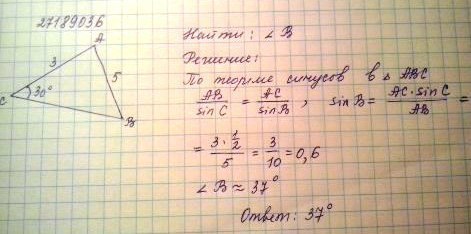 27189036
A
3
5
C
30°
B
Найти: ∠ B
Решение:
По теореме синусов в △ ABC
AB/sin C = AC/sin B, sin B = AC·sin C/AB =
= 3·1/2/5 = 3/10 = 0,6
∠ B ≈ 37°
Ответ: 37°